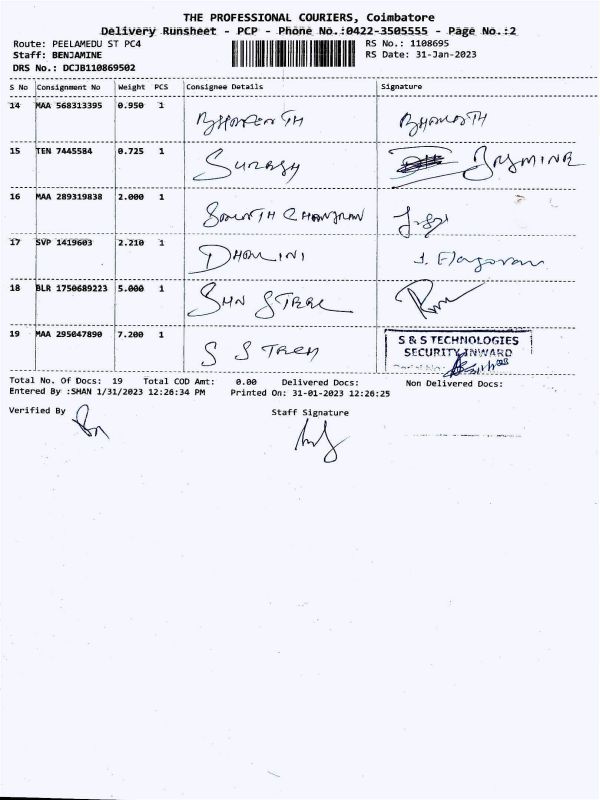 THE PROFESSIONAL COURIERS, Coimbatore
Delivery Runsheet - PCP - Phone No.:0422-3505555 - Page No.:2
Route: PEELAMEDU ST PC4
Staff: BENJAMINE
DRS No.: DCJB110869502
RS No.: 1108695
RS Date: 31-Jan-2023
S No Consignment No Weight PCS Consignee Details Signature
14 MAA 568313395 0.950 1
15 TEN 7445584 0.725 1 SURESH JASMINE
16 MAA 289319838 2.000 1
17 SVP 1419603 2.210 1 DHALINI
18 BLR 1750689223 5.000 1
19 MAA 295047890 7.200 1 S S TECH
S & S TECHNOLOGIES
SECURITY INWARD
Total No. Of Docs: 19 Total COD Amt: 0.00 Delivered Docs: Non Delivered Docs:
Entered By :SHAN 1/31/2023 12:26:34 PM Printed On: 31-01-2023 12:26:25
Verified By
Staff Signature